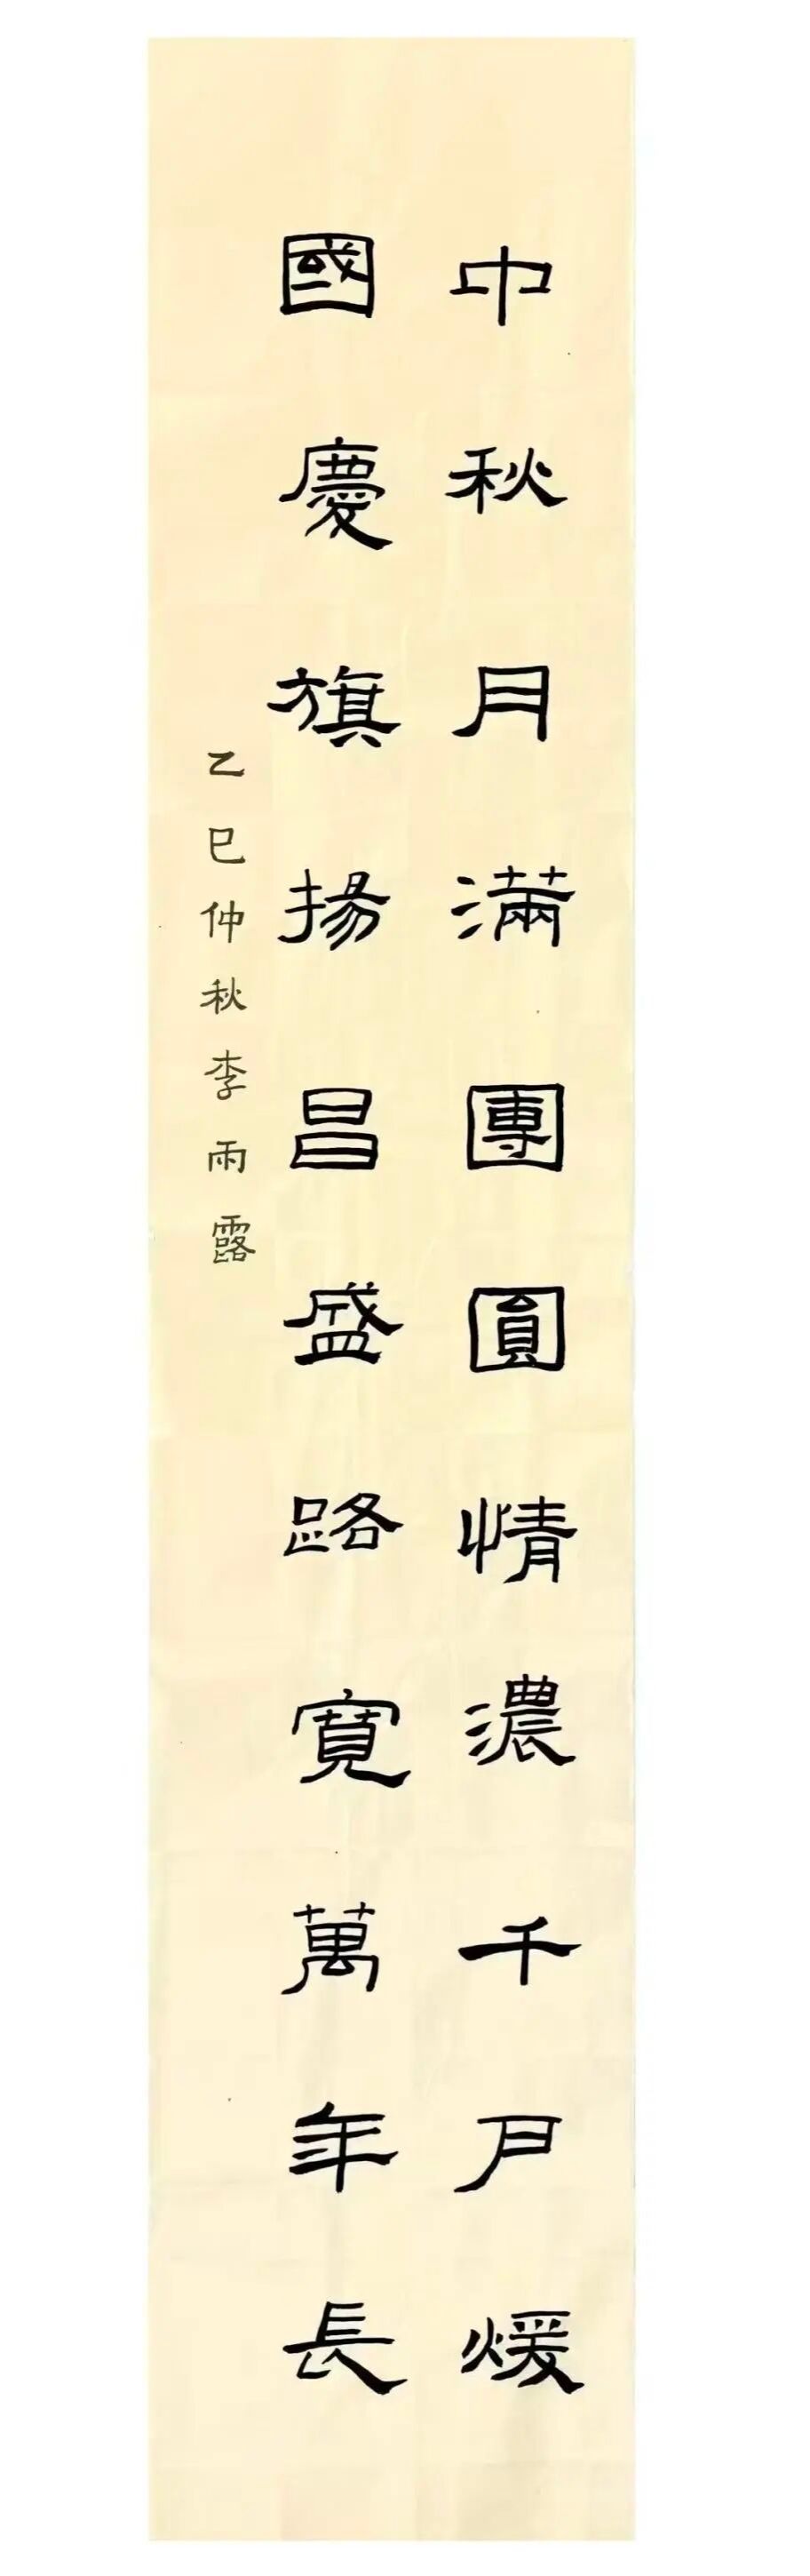 中秋月滿團圓情濃千戶煖
國慶旗揚昌盛路寬萬年長
乙巳仲秋李雨露